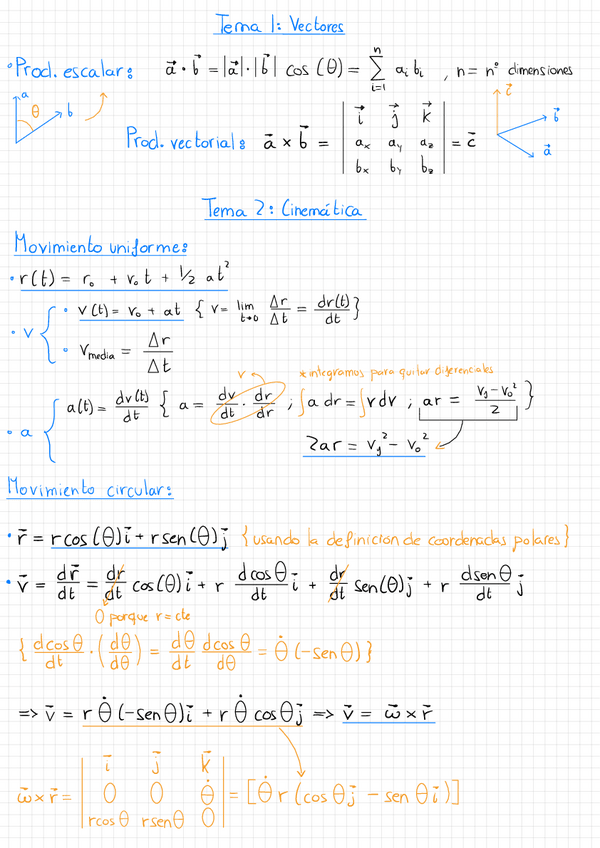 Tema 1: Vectores
• Prod. escalar: a⃗ · b⃗ = |a⃗|·|b⃗| cos (θ) = Σ_{i=1}^{n} a_i b_i , n = nº dimensiones
a θ b
c⃗ b⃗ a⃗
Prod. vectorial: a⃗ × b⃗ = | i⃗ j⃗ k⃗ | = c⃗
a_x a_y a_z
b_x b_y b_z
Tema 2: Cinemática
Movimiento uniforme:
• r(t) = r_0 + v_0 t + 1/2 at²
• v { • v(t) = v_0 + at { v = lim_{t→0} Δr/Δt = dr(t)/dt }
• v_media = Δr/Δt
v * integramos para quitar diferenciales
• a { a(t) = dv(t)/dt { a = dv/dt · dr/dr ; ∫a dr = ∫v dv ; ar = (v_y - v_0²)/2 }
2ar = v_y² - v_0²
Movimiento circular:
• r⃗ = r cos(θ)i⃗ + r sen(θ)j⃗ {usando la definición de coordenadas polares}
• v⃗ = dr⃗/dt = dr/dt cos(θ)i⃗ + r dcosθ/dt i⃗ + dr/dt sen(θ)j⃗ + r dsenθ/dt j⃗
0 porque r = cte
{ dcosθ/dt · (dθ/dθ) = dθ/dt dcosθ/dθ = θ̇ (-senθ) }
=> v⃗ = r θ̇ (-senθ)i⃗ + r θ̇ cosθ j⃗ => v⃗ = ω⃗ × r⃗
ω⃗ × r⃗ = | i⃗ j⃗ k⃗ | = [θ̇ r (cosθ j⃗ - senθ i⃗)]
0 0 θ̇
rcosθ rsenθ 0